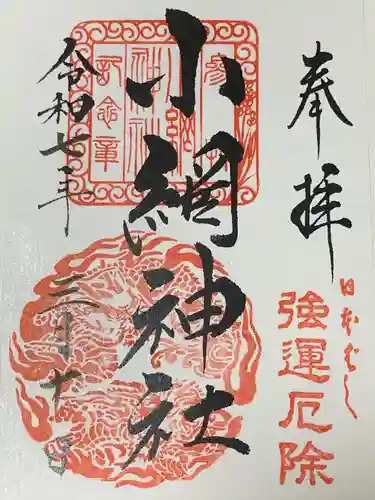 奉拝
日本ばし
強運厄除
小網神社
令和七年
三月十